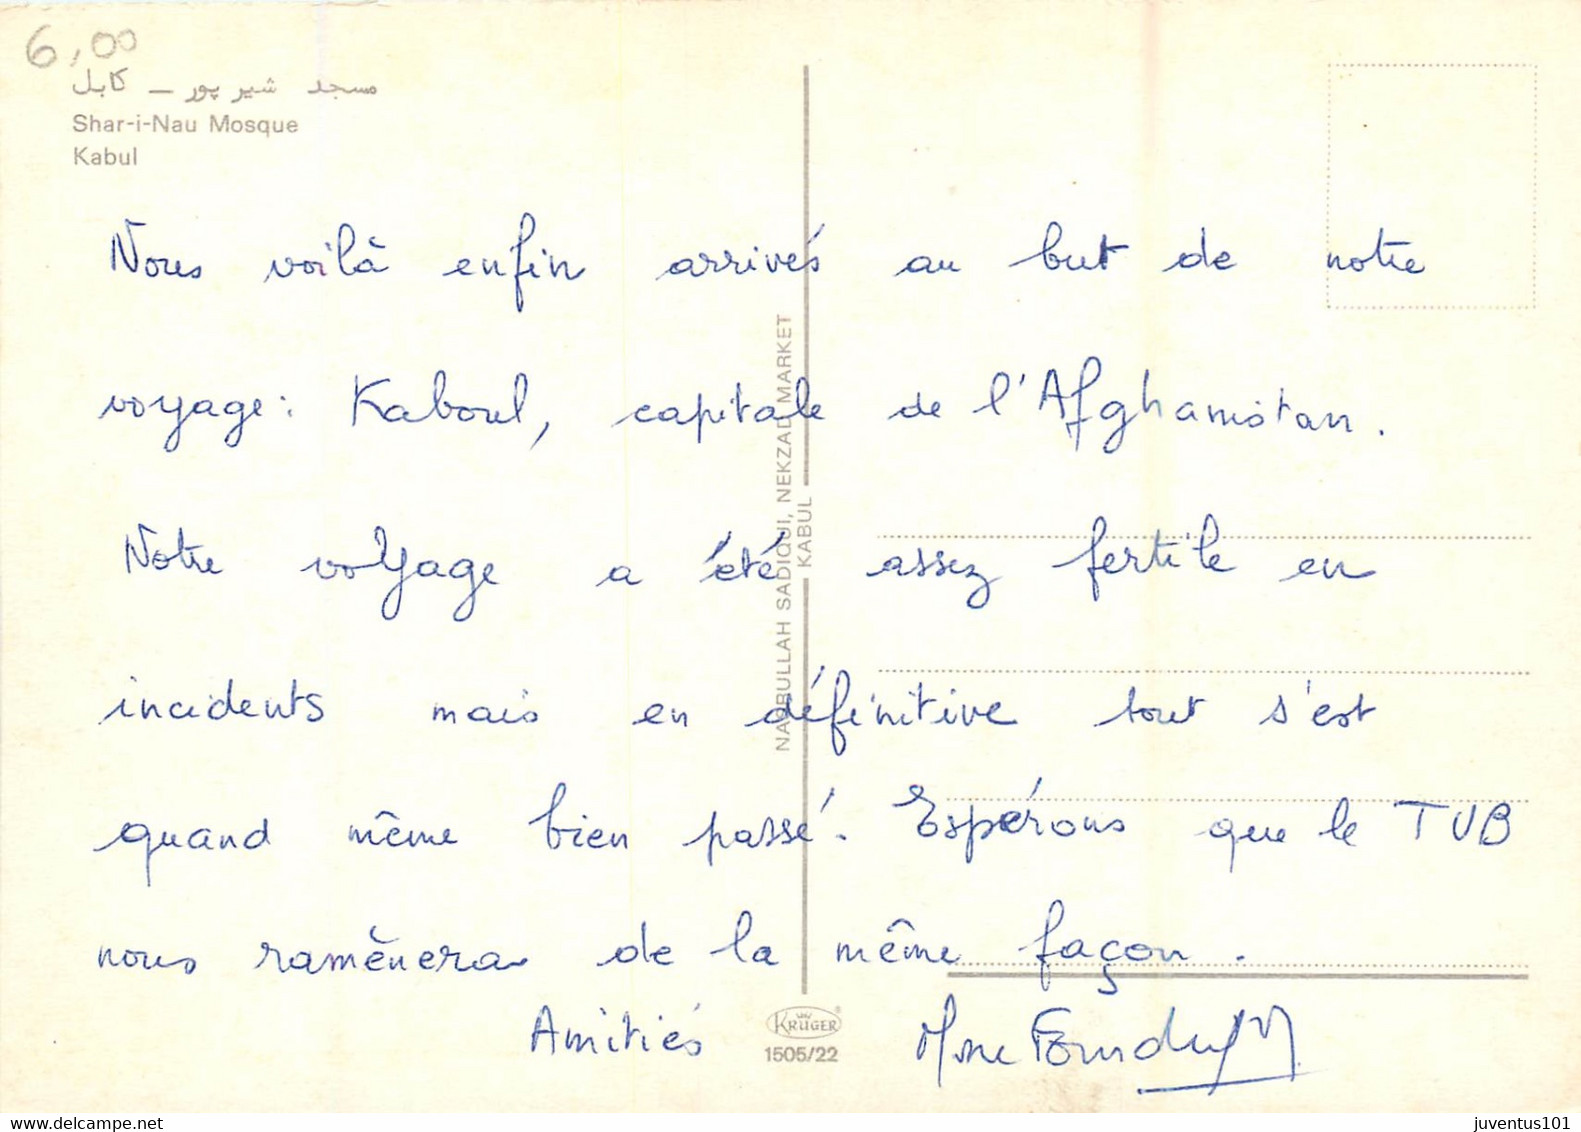 6,00
مسجد شیر پور – کابل
Shar-i-Nau Mosque
Kabul
Nous voilà enfin arrivés au but de notre
voyage : Kaboul, capitale de l'Afghanistan.
Notre voyage a été assez fertile en
incidents mais en définitive tout s'est
quand même bien passé. Espérons que le TUB
nous ramènera de la même façon.
Amitiés
NAQRULLAH SADIQUI, NEKZAD MARKET
KABUL
KRÜGER
1505/22
juventus101